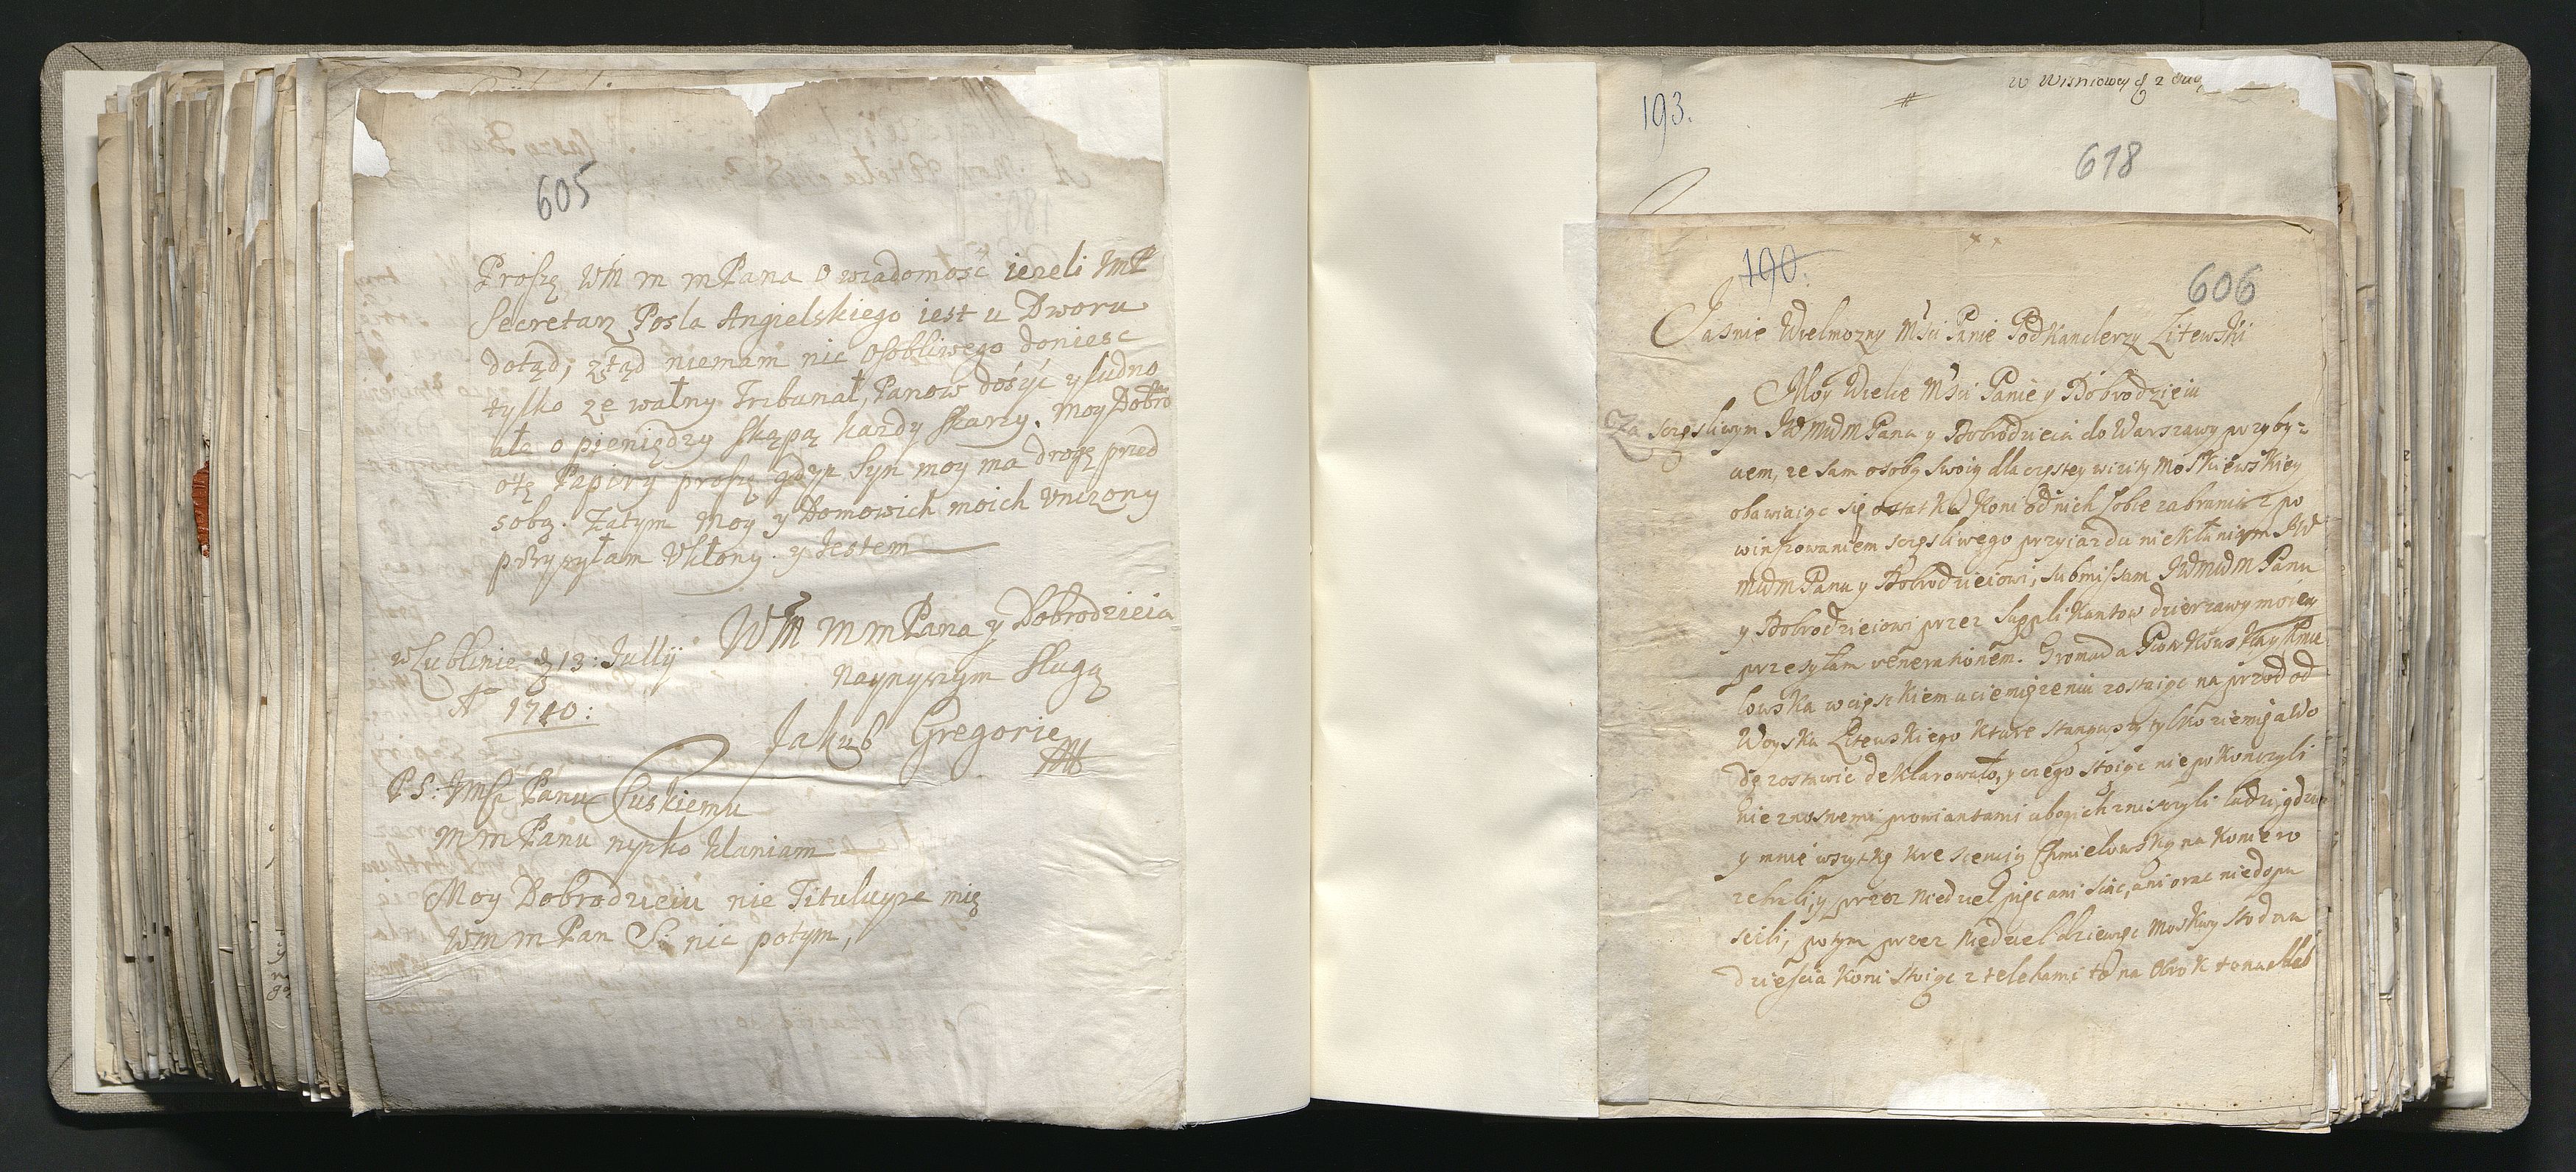 605
Proszę WM m mPana o wiadomość iezeli JmP
Secretarz Posla Angielskiego iest u Dworu
dotąd, ztąd niemam nic osobliwego doniesc
tylko ze walny Tribunał, Panow dosyć y ludno
ale o pieniądzy skąpą kazdy skarzy. Moy Dobro
otę Papiry proszę gdyz Syn moy ma drogę przed
sobą. Zatym moy y Domowich moich Vnizony
przysyłam Vkłony. y Jestem
WM M mPana y Dobrodzieia
w Lublinie d 13: Jullij
naynyszym Slugą
Aº 1710:
Jakub Gregorie
PS: JmSP Panu Cuskiemu
m m Panu nysko klaniam
Moy Dobrodzieiu nie Tituluyze mię
WM m Pan S: nic potym,
w Wisniowcy d 2 Aug
193.
618
190.
606
Jasnie Wielmozny Msci Panie Podkanclerzy Litewski
Moy Wielce Msci Panie y Dobrodzieiu
Za sczęsliwym JWMWM Pana y Dobrodzieia do Warszawy przyby-
ciem, ze sam osobą swoią dla częstey wizity Moskiewskiey
obawiaiąc się ostatka koni od nich sobie zabrania z po
winszowaniem sczęsliwego przyiazdu nie kłaniam JW
MWM Panu y Dobrodzieiowi, submissam JWMWM Panu
y Dobrodzieiowi przez Supplikantow dzierzawy moiey
przesyłam venerationem. Gromada Piorkowska y Kmie
lowska w cięszkiem uciemięzeniu zostaiąc na przod od
Woyska Litewskiego ktore stanąwszy tylko ziemię a Wo
dę zostawic deklarowało, y czego stoiąc nie pokonczyli
nieznosnemi prowiantami ubogich zniszczyli ludzi, gdzie
y mnie wszytkę krescencią Chmielowską na konie w
zebrali, y przez niedziel pięc ani siac, ani orac niedopu
scili, potym przez niedziel dziewięc Moskwy sto dwa
dziescia koni stoiąc z telehami to na obrok to na chleb